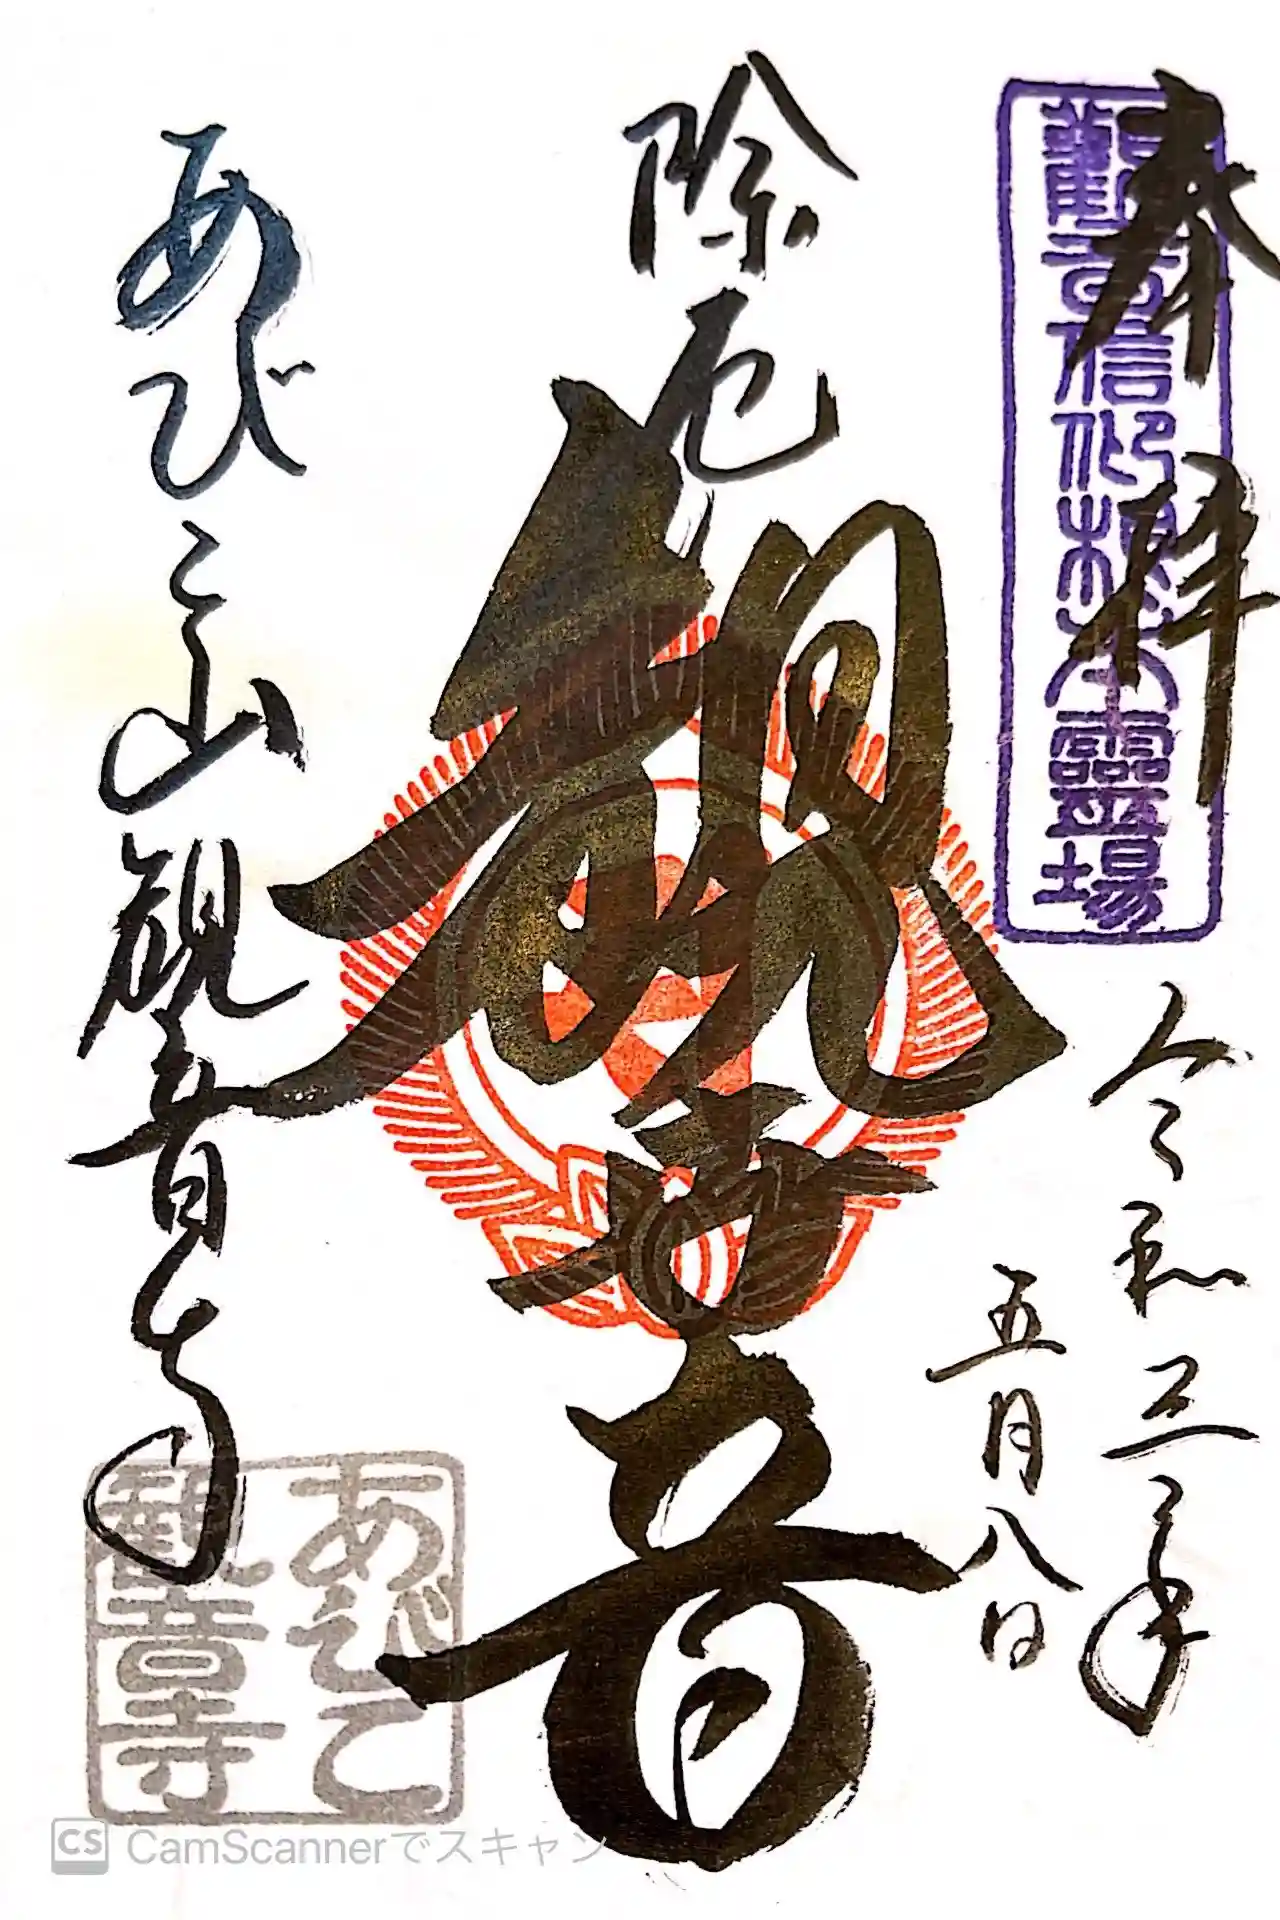 奉拝
觀音信仰根本靈場
令和三年
五月八日
除厄
観世音
あびこ山観音寺
あびこ
観音寺
CS CamScannerでスキャン